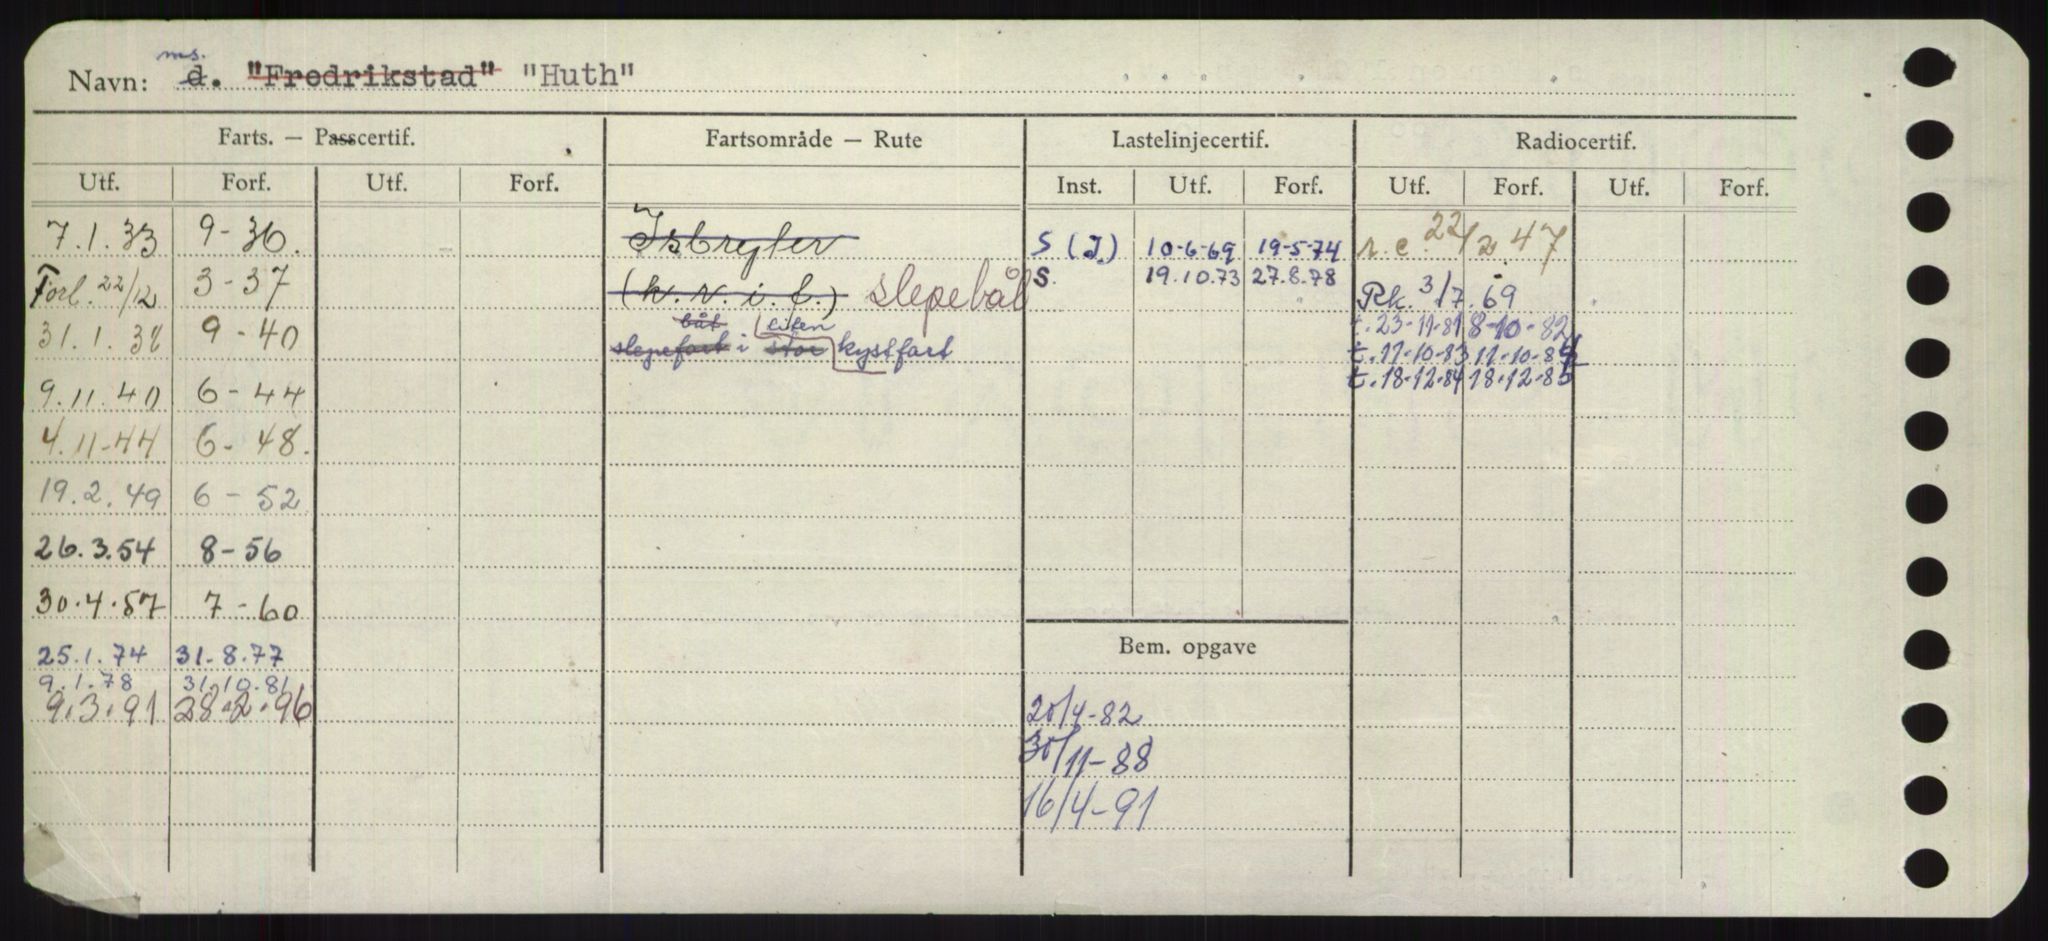 ms.
Navn: d. "Fredrikstad" "Huth"
Farts. — Passcertif. Fartsområde — Rute Lastelinjecertif. Radiocertif.
Utf. Forf. Utf. Forf. Inst. Utf. Forf. Utf. Forf. Utf. Forf.
7.1.33 9-36. Isbryter S (J) 10-6-69 19-5-74 r.c. 22/2 47
Forl. 22/12 3-37 (k.v.i.f.) slepebåt S. 19.10.73 27.8.78 Rk. 3/7.69
båt liten t.23-11-81 8-10-82
31.1.38 9-40 slepefart i stor kystfart t.11-10-83 11-10-84
t.18-12-84 18-12-85
9.11.40 6-44
4.11-44 6-48.
19.2.49 6-52
26.3.54 8-56
30.4.57 7-60
Bem. opgave
25.1.74 31.8.77
9.1.78 31.10.81
9.3.91 28.2.96 20/4-82
30/11-88
16/4-91